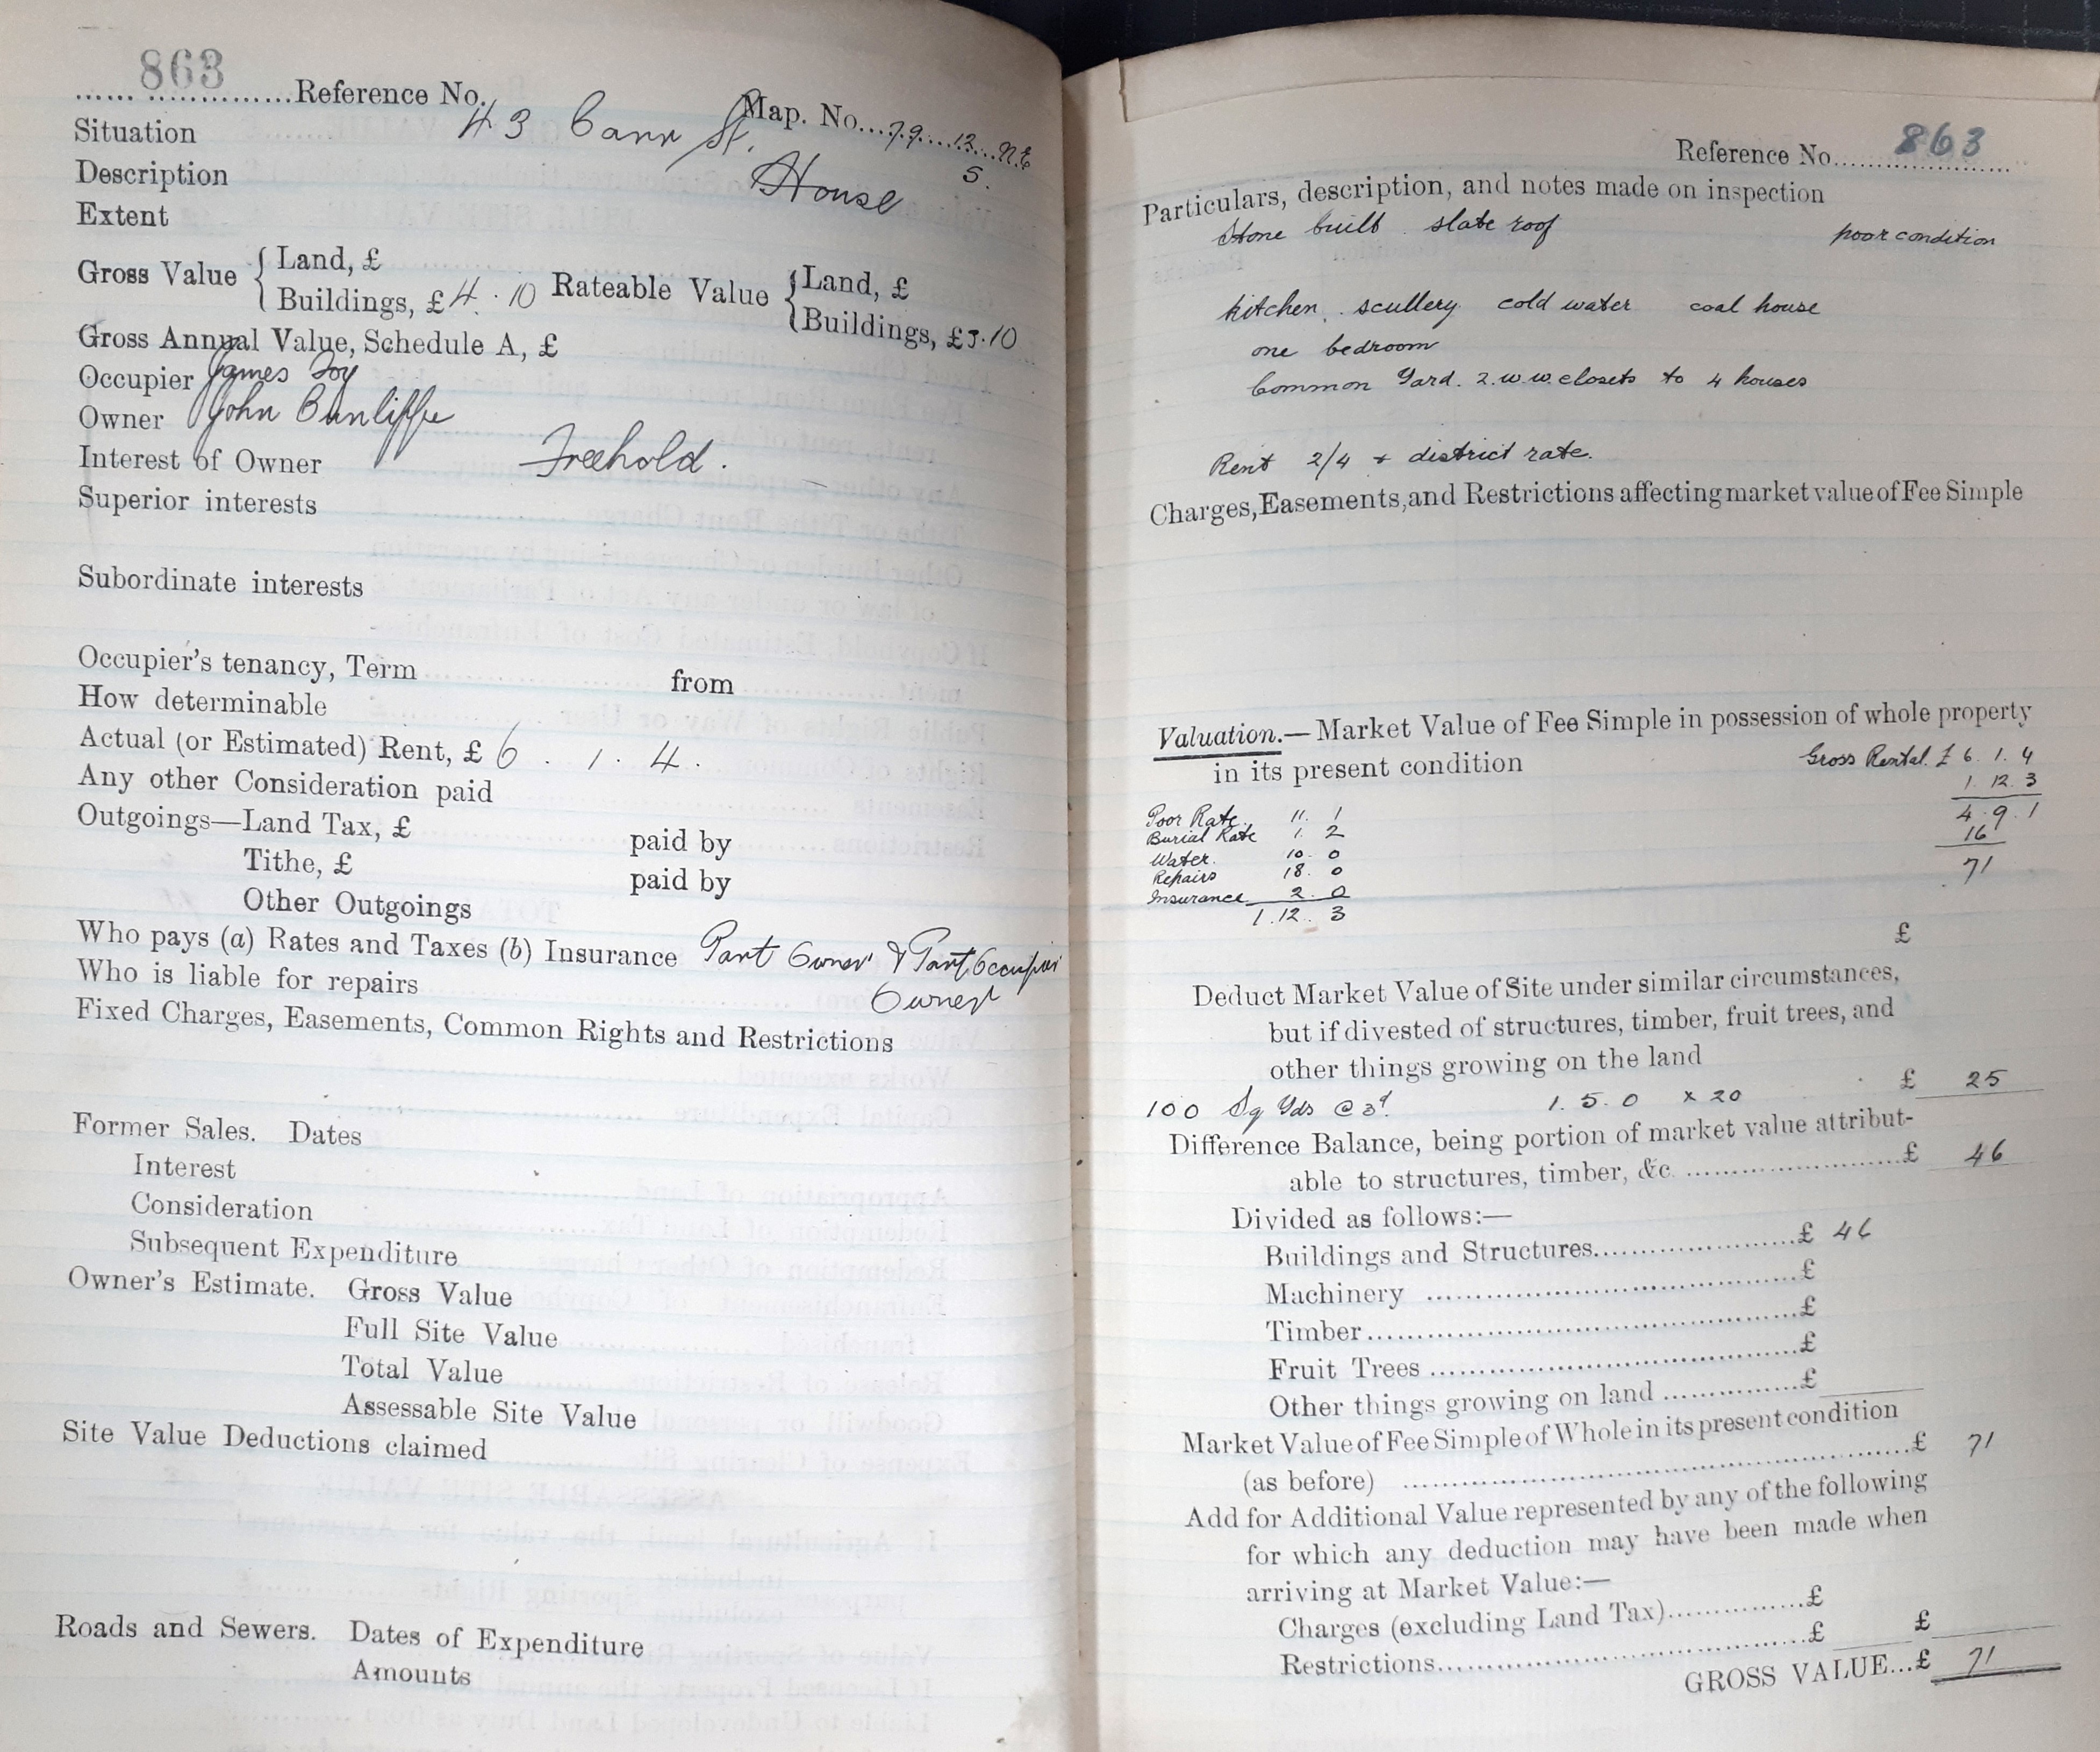 863
...... ..............Reference No. Map. No...79...12...N.E
Situation 43 Carr St. 5.
Description House
Extent
Gross Value { Land, £ Rateable Value { Land, £
Buildings, £ 4.10 Buildings, £3.10
Gross Annual Value, Schedule A, £
Occupier James Foy
Owner John Cunliffe
Interest of Owner Freehold.
Superior interests
Subordinate interests
Occupier's tenancy, Term from
How determinable
Actual (or Estimated) Rent, £ 6 . 1 . 4 .
Any other Consideration paid
Outgoings—Land Tax, £ paid by
Tithe, £ paid by
Other Outgoings
Who pays (a) Rates and Taxes (b) Insurance Part Owner & Part Occupier
Who is liable for repairs Owner
Fixed Charges, Easements, Common Rights and Restrictions
Former Sales. Dates
Interest
Consideration
Subsequent Expenditure
Owner's Estimate. Gross Value
Full Site Value
Total Value
Assessable Site Value
Site Value Deductions claimed
Roads and Sewers. Dates of Expenditure
Amounts
Reference No. 863
Particulars, description, and notes made on inspection
Stone built . slate roof poor condition
kitchen . scullery cold water coal house
one bedroom
Common Yard. 2.w.w.closets to 4 houses
Rent 2/4 + district rate.
Charges, Easements, and Restrictions affecting market value of Fee Simple
Valuation.— Market Value of Fee Simple in possession of whole property
in its present condition Gross Rental £ 6. 1. 4
1. 12. 3
Poor Rate. 11. 1 4. 9. 1
Burial Rate 1. 2 16
Water. 10. 0
Repairs 18. 0 71
Insurance 2. 0
1. 12. 3
£
Deduct Market Value of Site under similar circumstances,
but if divested of structures, timber, fruit trees, and
other things growing on the land £ 25
100 Sq Yds @ 3d. 1. 5. 0 x 20
Difference Balance, being portion of market value attribut-
able to structures, timber, &c. £ 46
Divided as follows:—
Buildings and Structures £ 46
Machinery £
Timber £
Fruit Trees £
Other things growing on land £
Market Value of Fee Simple of Whole in its present condition
(as before) £ 71
Add for Additional Value represented by any of the following
for which any deduction may have been made when
arriving at Market Value:—
Charges (excluding Land Tax) £
Restrictions £ £
GROSS VALUE...£ 71